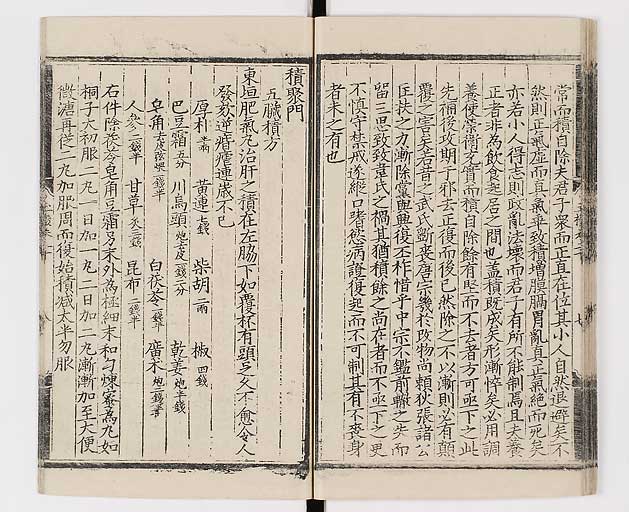 常而積自除夫君子衆而正直在位其小人自然退辟矣不
然則正氣虛而真氣乎致積增膜膈胃亂真正氣絕而死矣
亦若小人得志則政亂法壞而君子有所不能制焉且夫養
正者非為飲食起居之間也蓋積既成矣形漸悴矣必用調
養使榮衛充實而積自除餘有堅而不去者方可亟下之此
先補後攻期于邪去正復而後已然除之不以漸則必有顛
覆之害矣若昔之武氏斷喪唐宗幾於改物尚賴狄張諸公
匡扶之力漸除黨與興復丕祚惜乎中宗不鑑前轍之失而
留三思致致韋氏之禍其猶積餘之尚在者而不亟下之更
不慎守禁戒遂縱口嗜慾病證復起而不可制其有不喪身
者未之有也
積聚門
五臟積方
東垣肥氣丸治肝之積在左脇下如覆杯有頭足久不愈令人
發欬逆瘧連歲不已
厚朴半兩 黃連七錢 柴胡二兩 椒四錢
巴豆霜五分 川烏頭炮去皮一錢二分 乾姜炮半錢
皂角去皮弦煨一錢半 白茯苓一錢半 廣朮炮二錢半
人參二錢半 甘草炙三錢 昆布二錢半
右件除茯苓皂角豆霜另末外為極細末和勻煉蜜為丸如
桐子大初服二丸一日加一丸二日加二丸漸漸加至大便
微溏再從二丸加服周而復始積減大半勿服